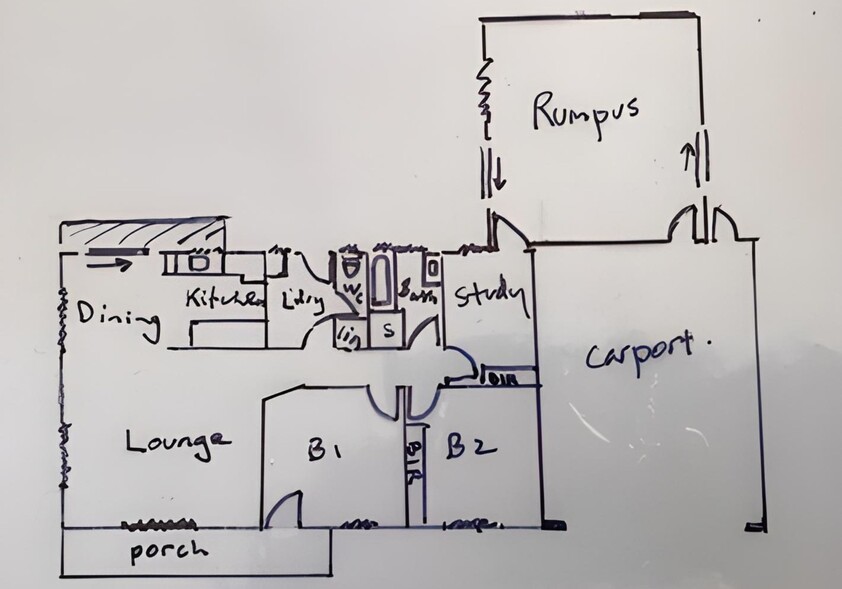 Rumpus
Dining
Kitchen
Ldry
WC
Bath
Study
lin
S
carport.
BIR
Lounge
B1
BIR
B2
porch